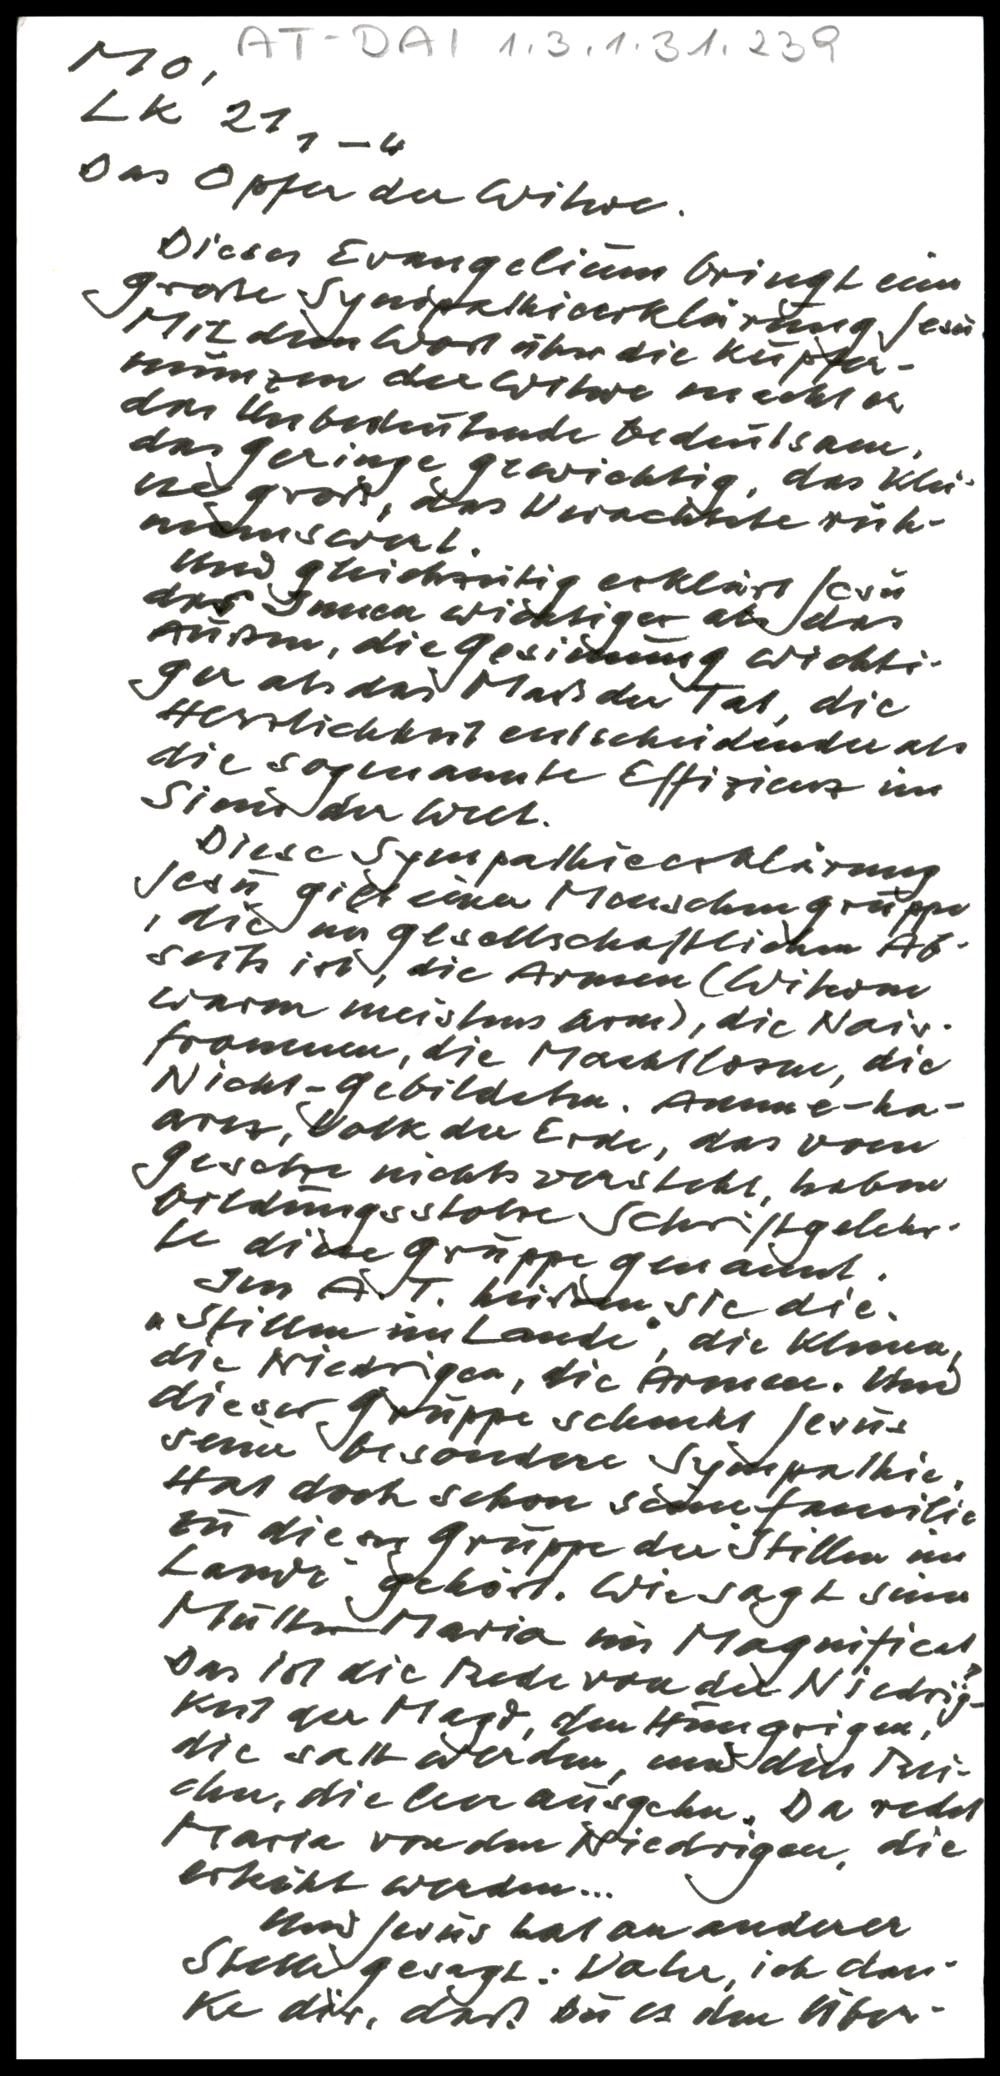 AT-DAI 1.3.1.31.239
Mo,
LK 21, 1-4
Das Opfer der Witwe.
Dieses Evangelium bringt eine
große Sympathieerklärung Jesu.
Mit dem Wort über die Kupfer-
münzen der Witwe macht er
das Unbedeutende bedeutsam,
das geringe gewichtig, das Klei-
ne groß, das Verachtete rüh-
menswert.
Und gleichzeitig erklärt Jesu
das Innen wichtiger als das
Außen, die Gesinnung wichti-
ger als das Maß der Tat, die
Herzlichkeit entscheidender als
die sogenannte Effizienz im
Sinn der Welt.
Diese Sympathieerklärung
Jesu gilt einer Menschengruppe
, die im gesellschaftlichen Ab-
seits ist, die Armen (Witwen
waren meistens arm), die Naiv-
frommen, die Machtlosen, die
Nicht-Gebildeten. Amme-ha-
arez, Volk der Erde, das vom
Gesetze nichts versteht, haben
bildungsstolze Schriftgelehr-
te diese Gruppe genannt.
Im A.T. heißen sie die
"Stillen im Lande", die Kleinen,
die Niedrigen, die Armen. Und
dieser Gruppe schenkt Jesus
seine besondere Sympathie.
Hat doch schon seine Familie
zu dieser Gruppe der "Stillen im
Lande" gehört. Wie sagt seine
Mutter Maria im Magnificat?
Das ist die Rede von der Niedrig-
keit der Magd, den Hungrigen,
die satt werden, und den Rei-
chen, die leer ausgehn. Da redet
Maria von den Niedrigen, die
erhöht werden...
Und Jesus hat an anderer
Stelle gesagt: Vater, ich dan-
ke dir, daß Du es den Über-